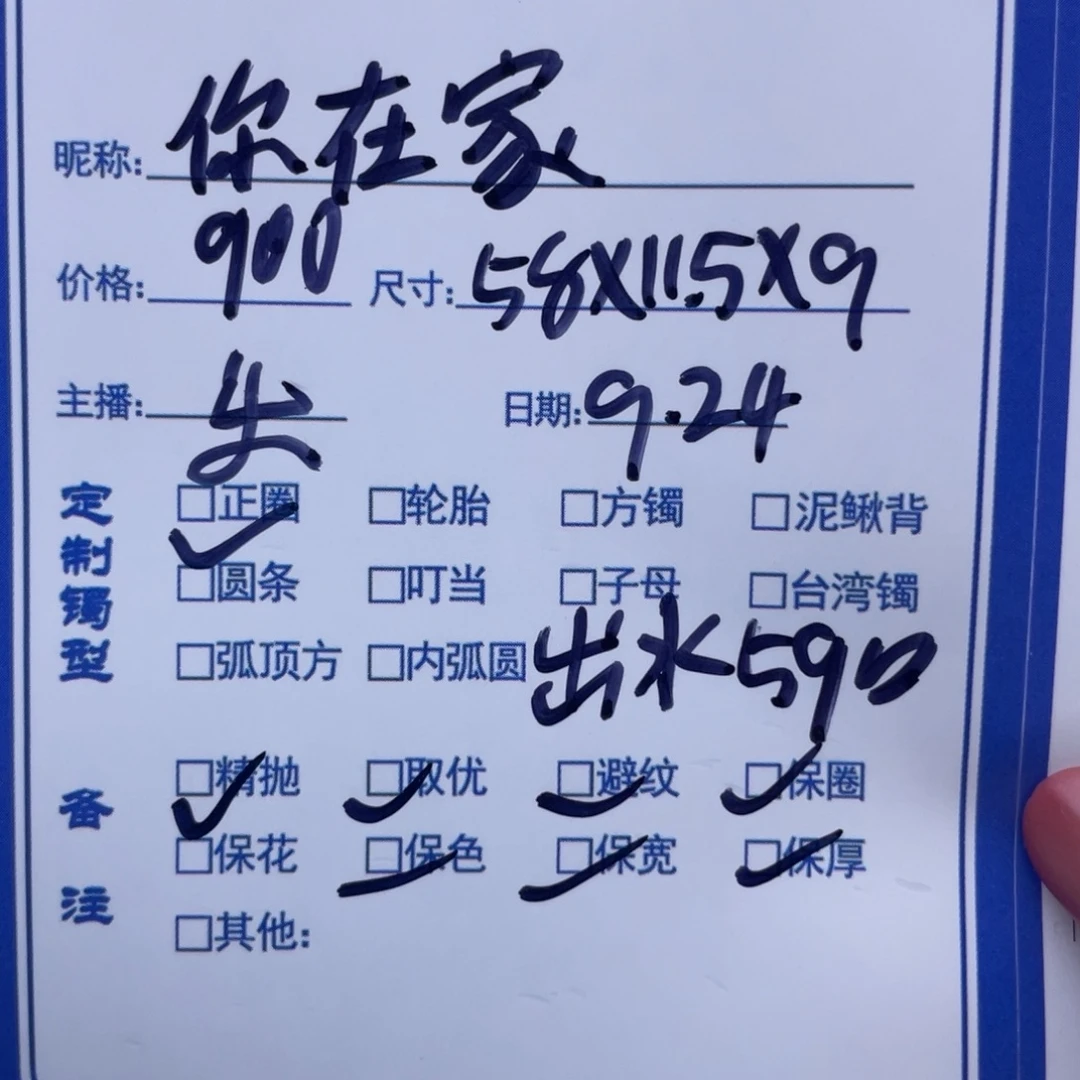 昵称: 你在家
价格: 900 尺寸: 58X11.5X9
主播: 日期: 9.24
定制镯型
□正圈 □轮胎 □方镯 □泥鳅背
□圆条 □叮当 □子母 □台湾镯
□弧顶方 □内弧圆 出水59口
备注
□精抛 □取优 □避纹 □保圈
□保花 □保色 □保宽 □保厚
□其他: